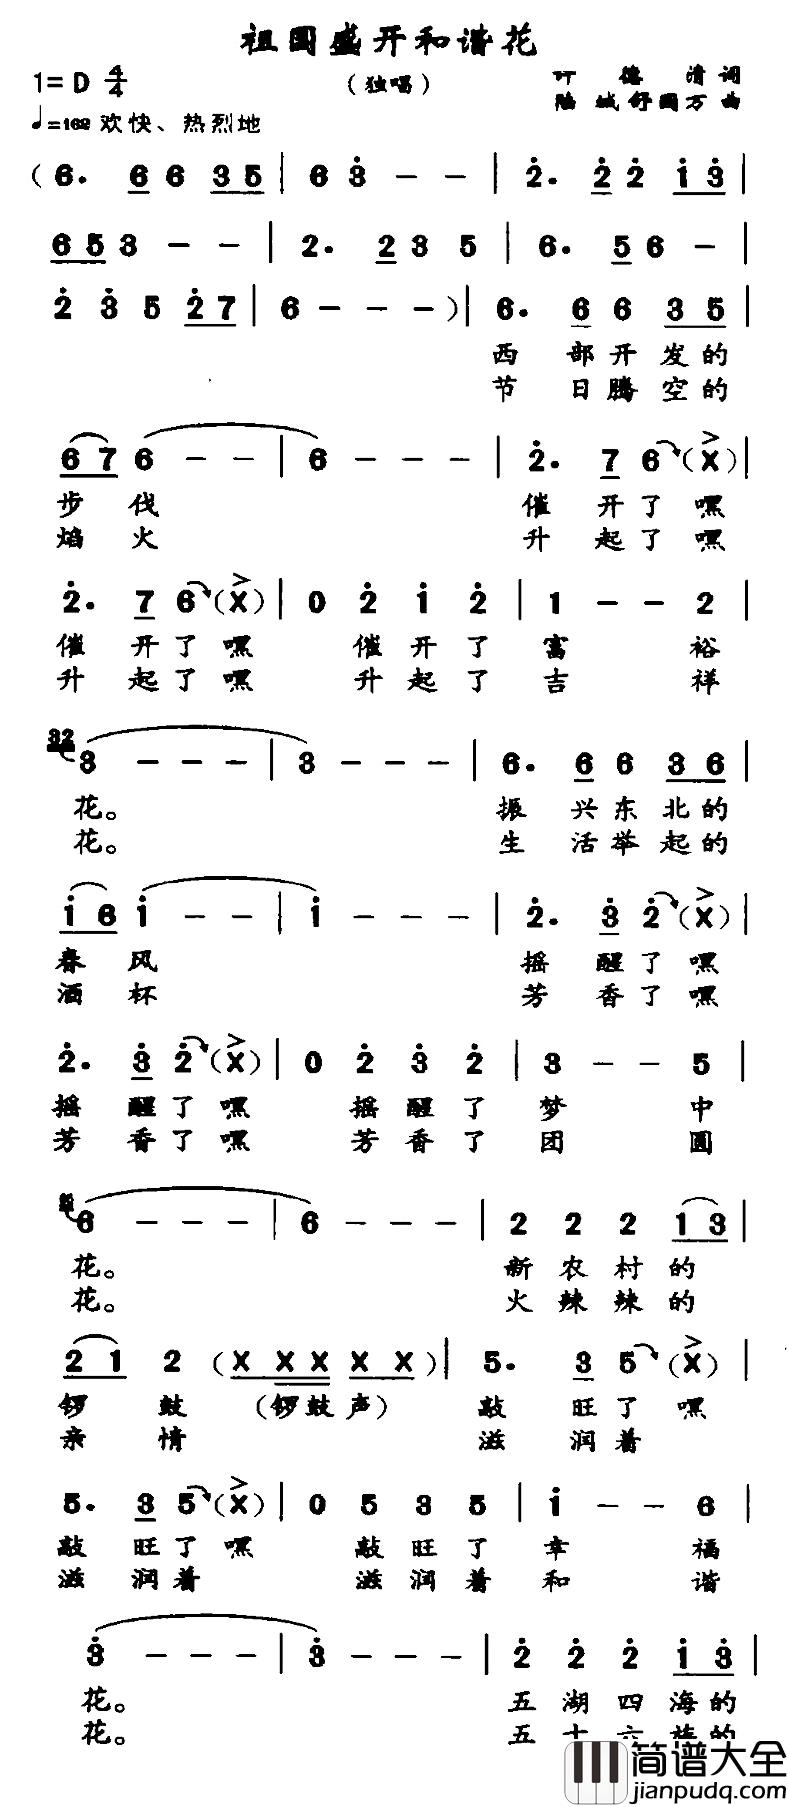 祖国盛开和谐花
1=D 4/4
（独唱）
叶德清词
陆城舒国万曲
♩=162 欢快、热烈地
（6. 6 6 3 5 | 6 3 - - | 2. 2 2 1 3 |
6 5 3 - - | 2. 2 3 5 | 6. 5 6 - |
2 3 5 2 7 | 6 - - - ）| 6. 6 6 3 5 |
西部开发的
节日腾空的
6 7 6 - - | 6 - - - | 2. 7 6 （X）|
步伐 催开了嘿
焰火 升起了嘿
2. 7 6 （X）| 0 2 1 2 | 1 - - 2 |
催开了嘿 催开了富裕
升起了嘿 升起了吉祥
32
3 - - - | 3 - - - | 6. 6 6 3 6 |
花。 振兴东北的
花。 生活举起的
1 6 1 - - | 1 - - - | 2. 3 2 （X）|
春风 摇醒了嘿
酒杯 芳香了嘿
2. 3 2 （X）| 0 2 3 2 | 3 - - 5 |
摇醒了嘿 摇醒了梦中
芳香了嘿 芳香了团圆
6 - - - | 6 - - - | 2 2 2 1 3 |
花。 新农村的
花。 火辣辣的
2 1 2 （X X X X X）| 5. 3 5 （X）|
锣鼓 （锣鼓声） 敲旺了嘿
亲情 滋润着
5. 3 5 （X）| 0 5 3 5 | 1 - - 6 |
敲旺了嘿 敲旺了幸福
滋润着 滋润着和谐
3 - - - | 3 - - - | 2 2 2 1 3 |
花。 五湖四海的
花。 五十六族的
简谱大全
jianpudq.com